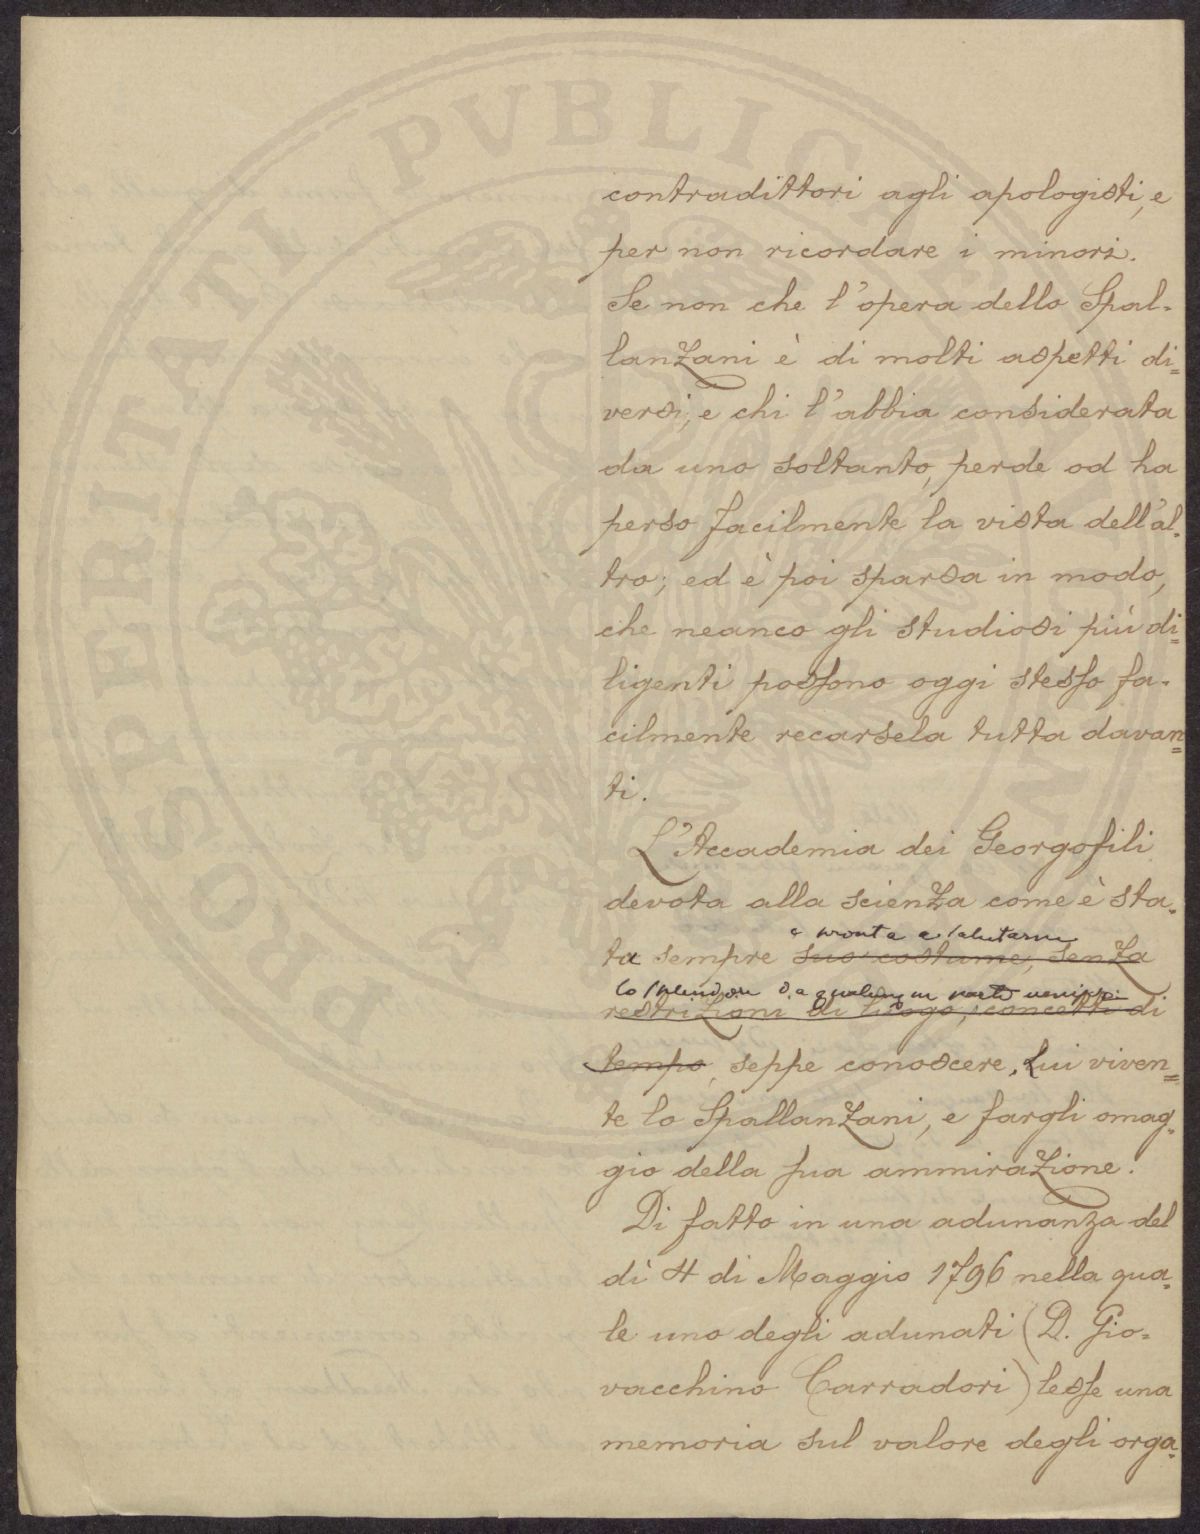 PROSPERITATI PVBLICAE
contradittori agli apologisti, e
per non ricordare i minori.
Se non che l'opera dello Spal-
lanzani è di molti aspetti di=
versi; e chi l'abbia considerata
da uno soltanto, perde od ha
perso facilmente la vista dell'al-
tro; ed è poi sparsa in modo,
che neanco gli studiosi più di=
ligenti possono oggi stesso fa-
cilmente recarsela tutta davan=
ti.
L'Accademia dei Georgofili
devota alla scienza come è sta-
e pronta a salutarne
ta sempre suo costume, senza
lo splendore da qualunque parte venisse
restrizioni di luogo, concetti di
tempo, seppe conoscere, Lui viven=
te lo Spallanzani, e fargli omag-
gio della sua ammirazione.
Di fatto in una adunanza del
dì 4 di Maggio 1796 nella qua-
le uno degli adunati (D. Gio-
vacchino Carradori) lesse una
memoria sul valore degli orga-